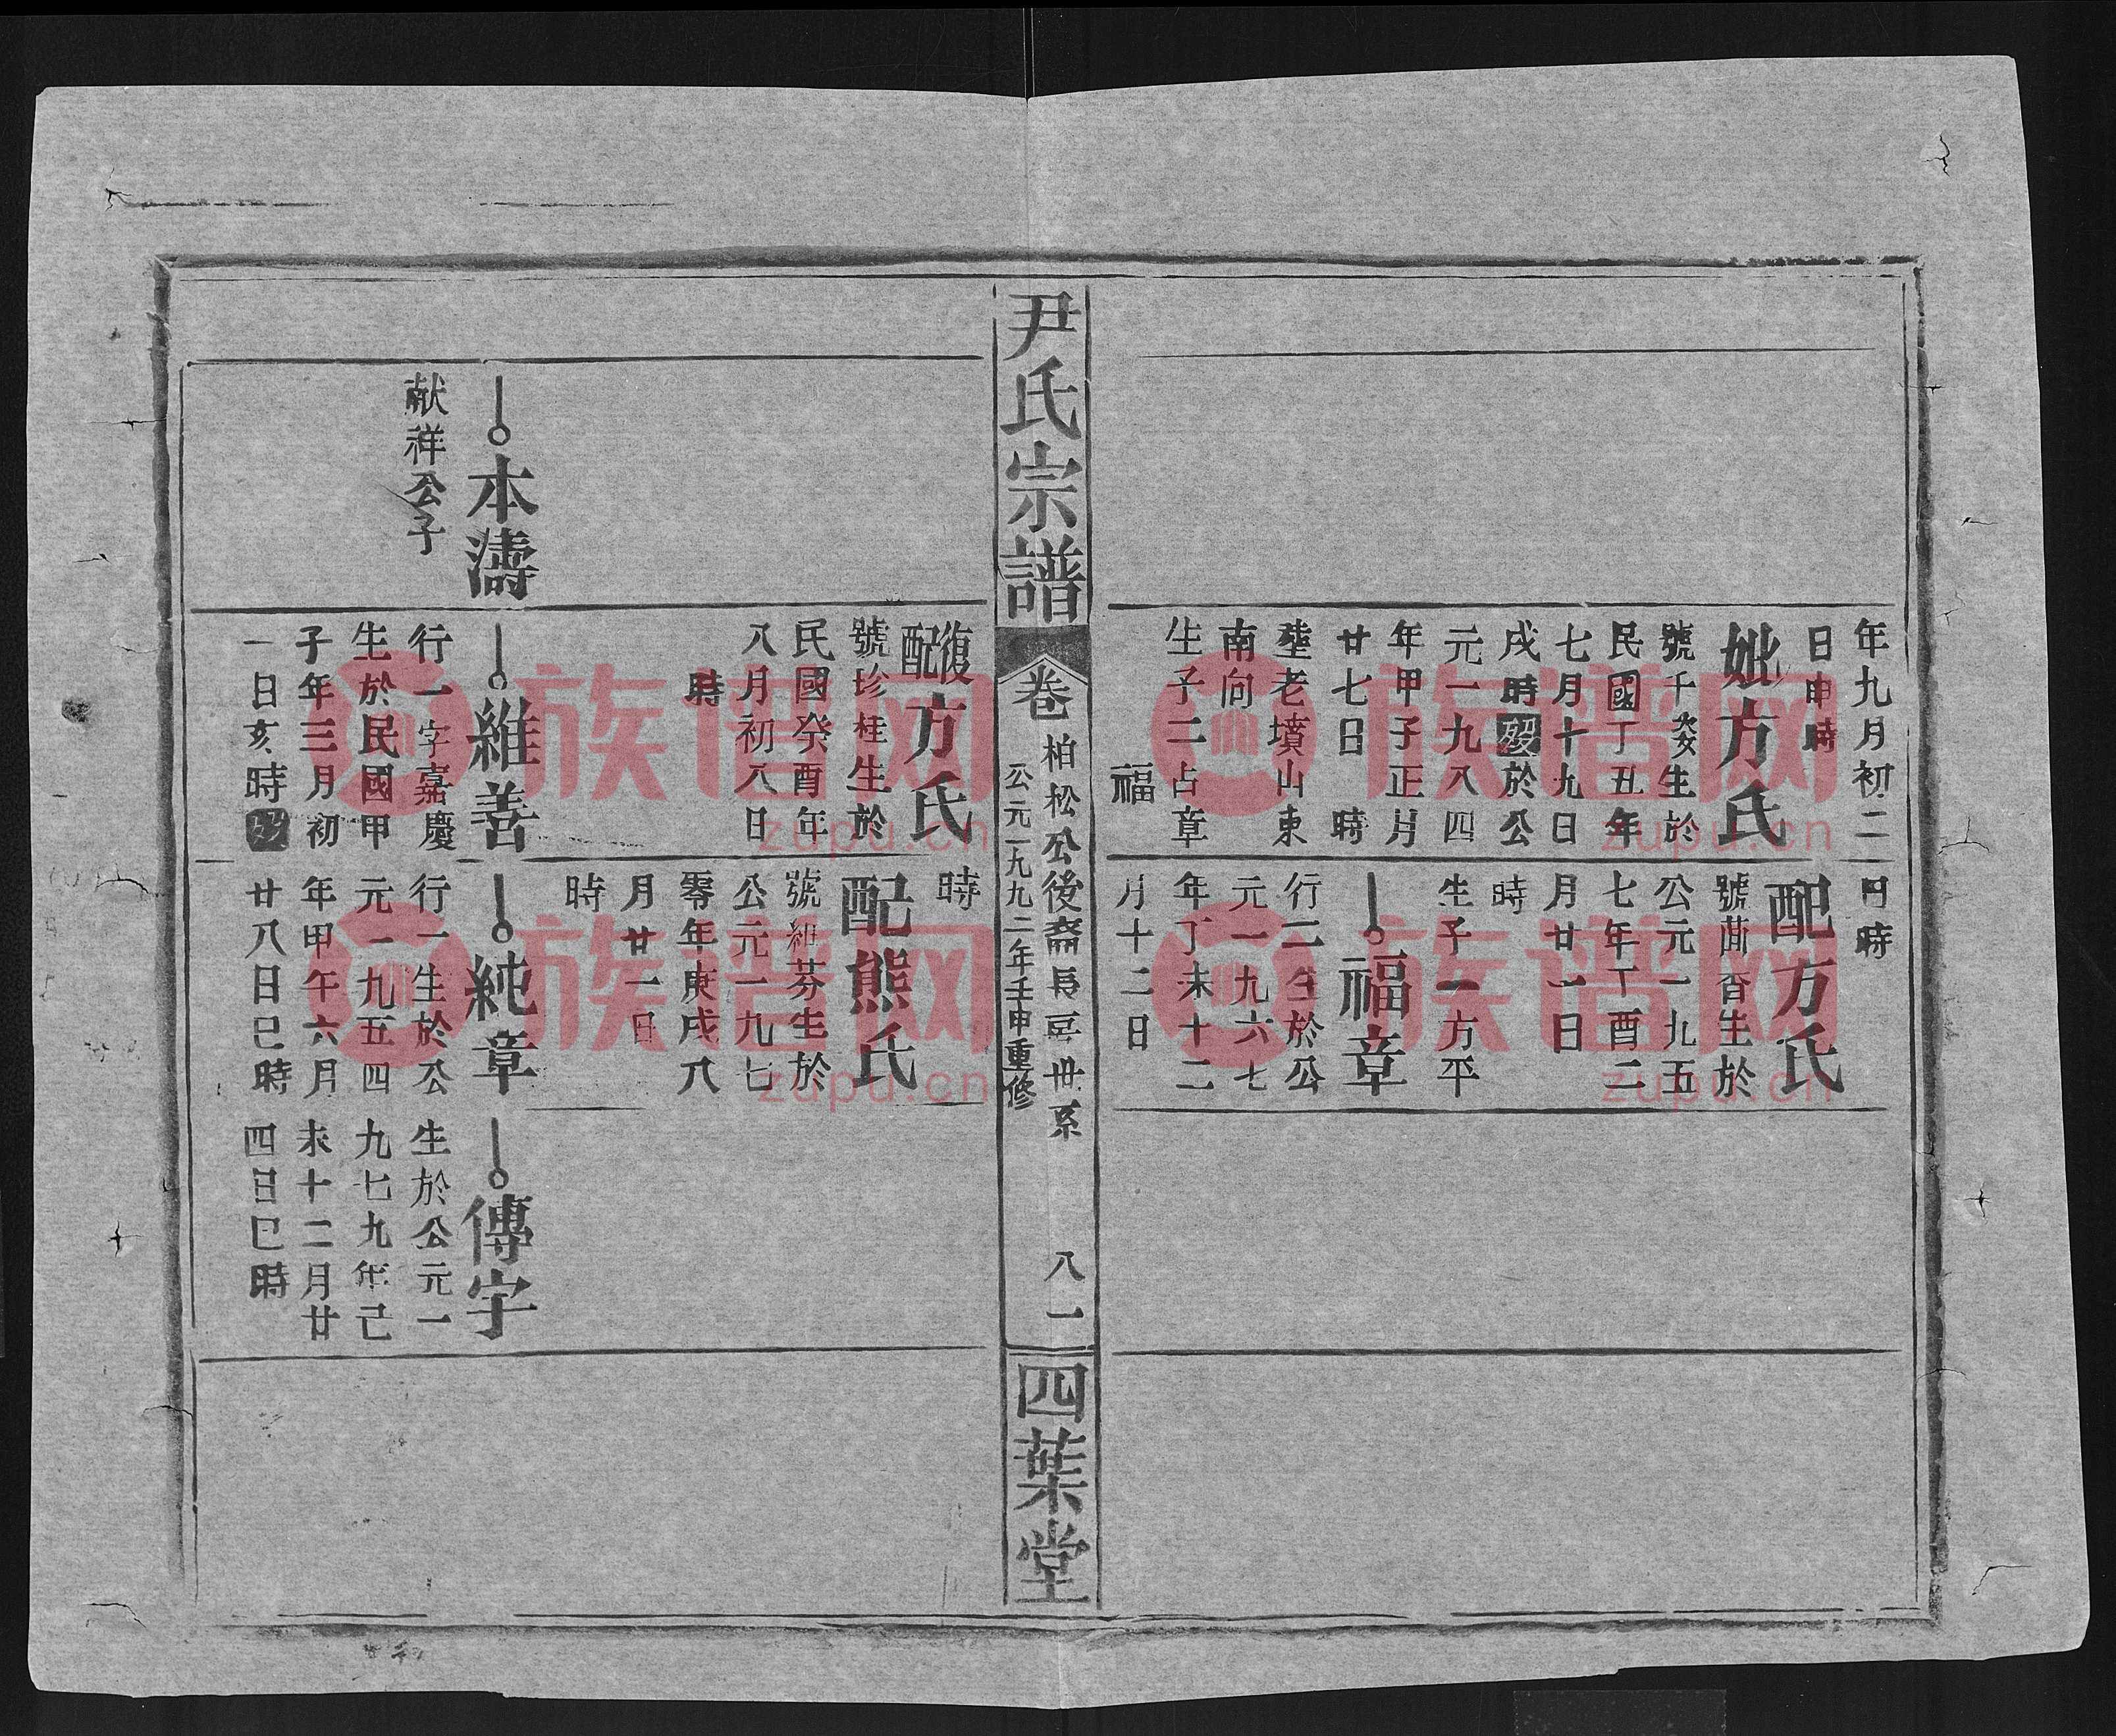 年九月初二
日申時
妣方氏
號千姿生於
民國丁丑年
七月十九日
戌時歿於公
元一九八四
年甲子正月
廿七日 時
塟老墳山東
南向
生子二占章
福
日時
配方氏
公元一九五
七年丁酉二
月廿一日
時
生子一方平
福章
行二生於公
元一九六七
年丁未十二
月十二日
尹氏宗譜
卷 柏松公後裔長房世系 八一
公元一九九二年壬申重修
四葉堂
復配方氏
號珍桂生於
民國癸酉年
八月初八日
時
時
配熊氏
號細芬生於
公元一九七
零年庚戌八
月廿一日
時
本濤
献祥公子
維善
行一字嘉慶
生於民國甲
子年三月初
一日亥時歿
純章
行一生於公
元一九五四
年甲午六月
廿八日巳時
傳宇
生於公元一
九七九年己
未十二月廿
四日巳時
族谱网
zupu.cn
族谱网
zupu.cn
族谱网
zupu.cn
族谱网
zupu.cn